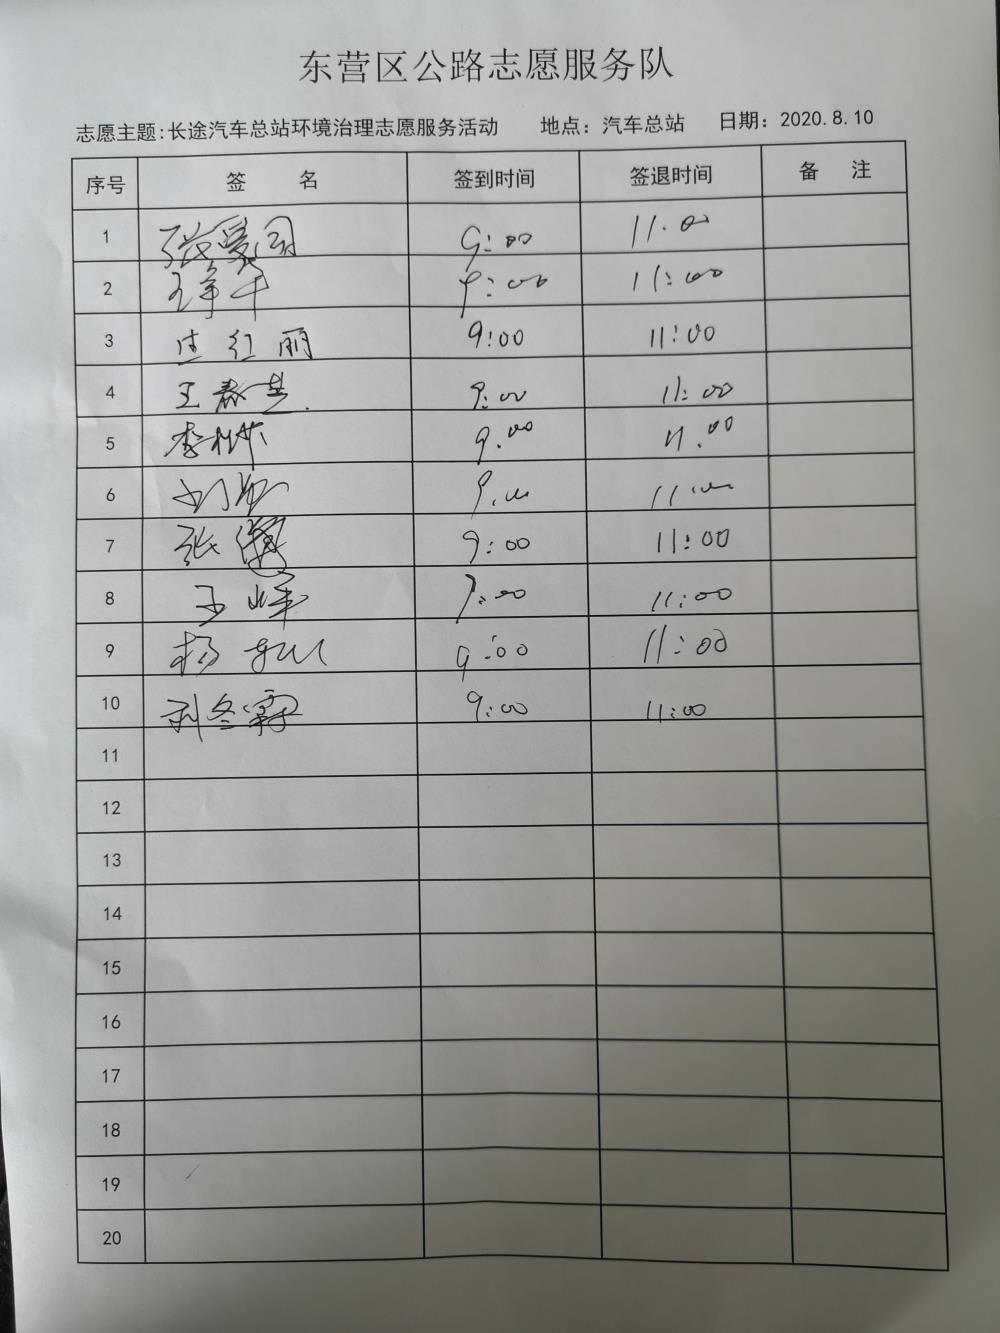 东营区公路志愿服务队
志愿主题:长途汽车总站环境治理志愿服务活动 地点：汽车总站 日期：2020.8.10
序号 签 名 签到时间 签退时间 备 注
1 张爱国 9:00 11.00
2 9:00 11:00
3 红丽 9:00 11:00
4 王春 9:00 11:00
5 李 9.00 11.00
6 刘 9.00 11.00
7 张 9:00 11:00
8 王峰 9:00 11:00
9 杨 9:00 11:00
10 刘冬霜 9:00 11:00
11
12
13
14
15
16
17
18
19
20